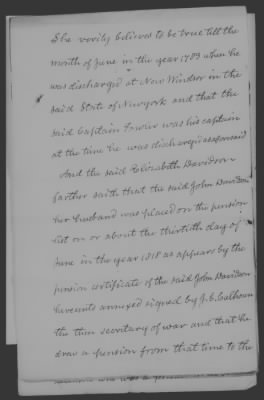 She verily believes to be true till the
month of June in the year 1783 when he
was discharged at New Windsor in the
said State of Newyork and that the
said Captain Fowler was his captain
at the time he was discharged as aforesaid
And the said Elizabeth Davidson
farther saith that the said John Davidson
her husband was placed on the pension
list on or about the thirtieth day of
June in the year 1818 as appears by the
pension certificate of the said John Davidson
hereunto annexed signed by J. C. Calhoun
the then secretary of war and that he
drew a pension from that time to the